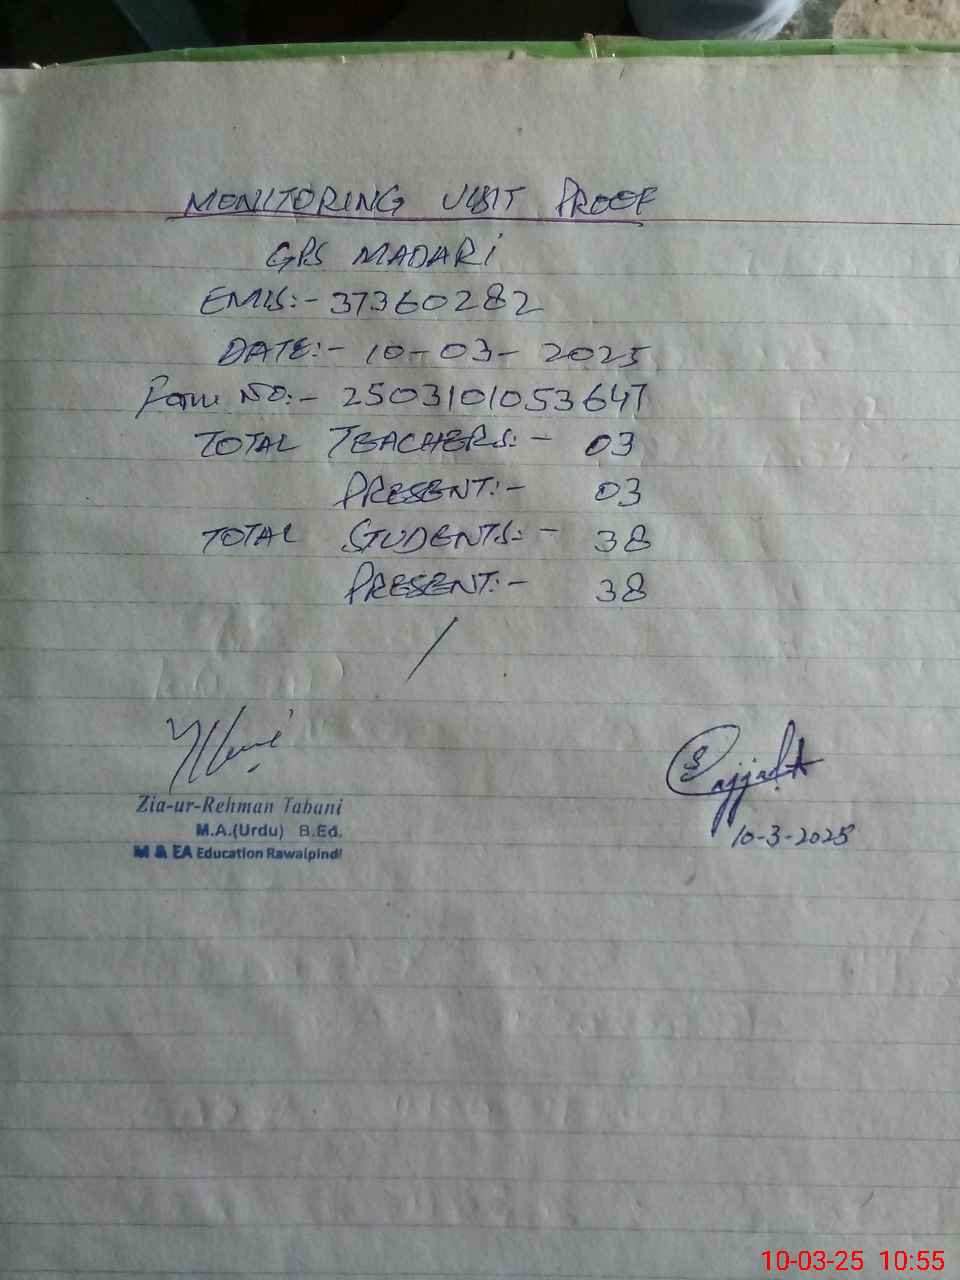 MONITORING VISIT PROOF
GPS MADARI
EMIS:- 37360282
DATE:- 10-03-2025
Form No:- 2503101053647
TOTAL TEACHERS:- 03
PRESENT:- 03
TOTAL STUDENTS:- 38
PRESENT:- 38
Sajjad A
Zia-ur-Rehman Tabani
M.A.(Urdu) B.Ed.
10-3-2025
M & EA Education Rawalpindi
10-03-25 10:55